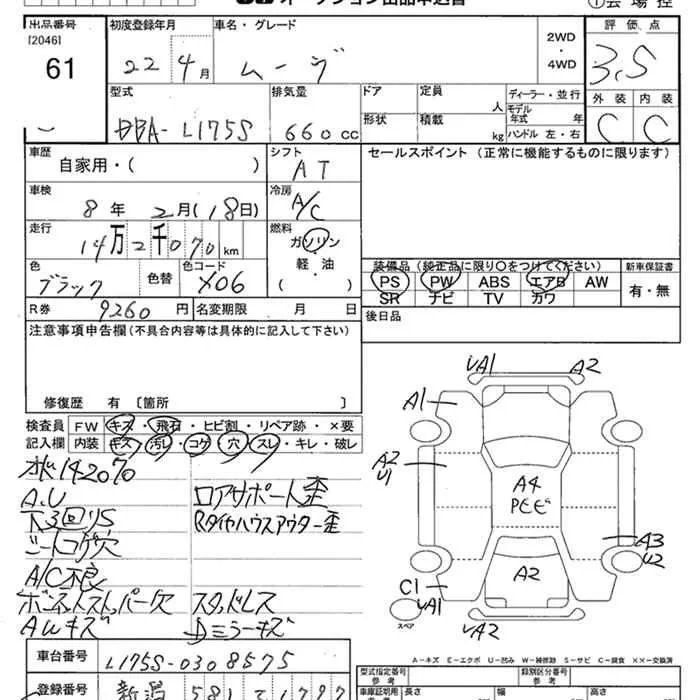 オークション出品申込書
①会場控
出品番号 [2046] 61
初度登録年月 22 4月
車名・グレード ムーヴ
2WD・4WD
評価点 3.5
外装 C 内装 C
型式 DBA-L175S
排気量 660cc
ドア 形状
定員 人 積載 kg
ディーラー・並行
モデル年式 年
ハンドル 左・右
車歴 自家用・( )
シフト AT
セールスポイント (正常に機能するものに限ります)
車検 8年 2月(18日)
冷房 A/C
走行 14万2千070km
燃料 ガソリン 軽・油 ( )
色 ブラック 色替 色コード X06
装備品(純正品に限り○をつけてください)
PS PW ABS エアB AW
SR ナビ TV カワ
新車保証書 有・無
R券 9260円 名変期限 月 日
後日品
注意事項申告欄(不具合内容等は具体的に記入して下さい)
修復歴 有 [箇所 ]
検査員記入欄
FW キズ・飛石・ヒビ割・リペア跡・×要
内装 キズ・汚レ・コゲ・穴・スレ・キレ・破レ
142070
A.U
下3回リS
シートコゲ穴
A/C不良
AWキズ
ロアサポート歪
Rタイヤハウスアウター歪
スタッドレス
Dミラーキズ
UA1 A2
A1
A2 U1
A4
A3 U2
A2
C1 UA1
UA2
スペア
A-キズ E-エクボ U-凹み W-補修跡 S-サビ C-腐食 XX-交換済
車台番号 L175S-0308575
登録番号 新潟 581
型式指定番号 参考
類別区分番号 参考
車庫証明用 参考
長さ 幅 高さ